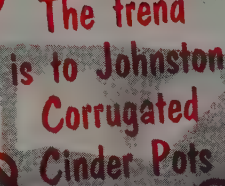 The trend
is to Johnston
Corrugated
Cinder Pots